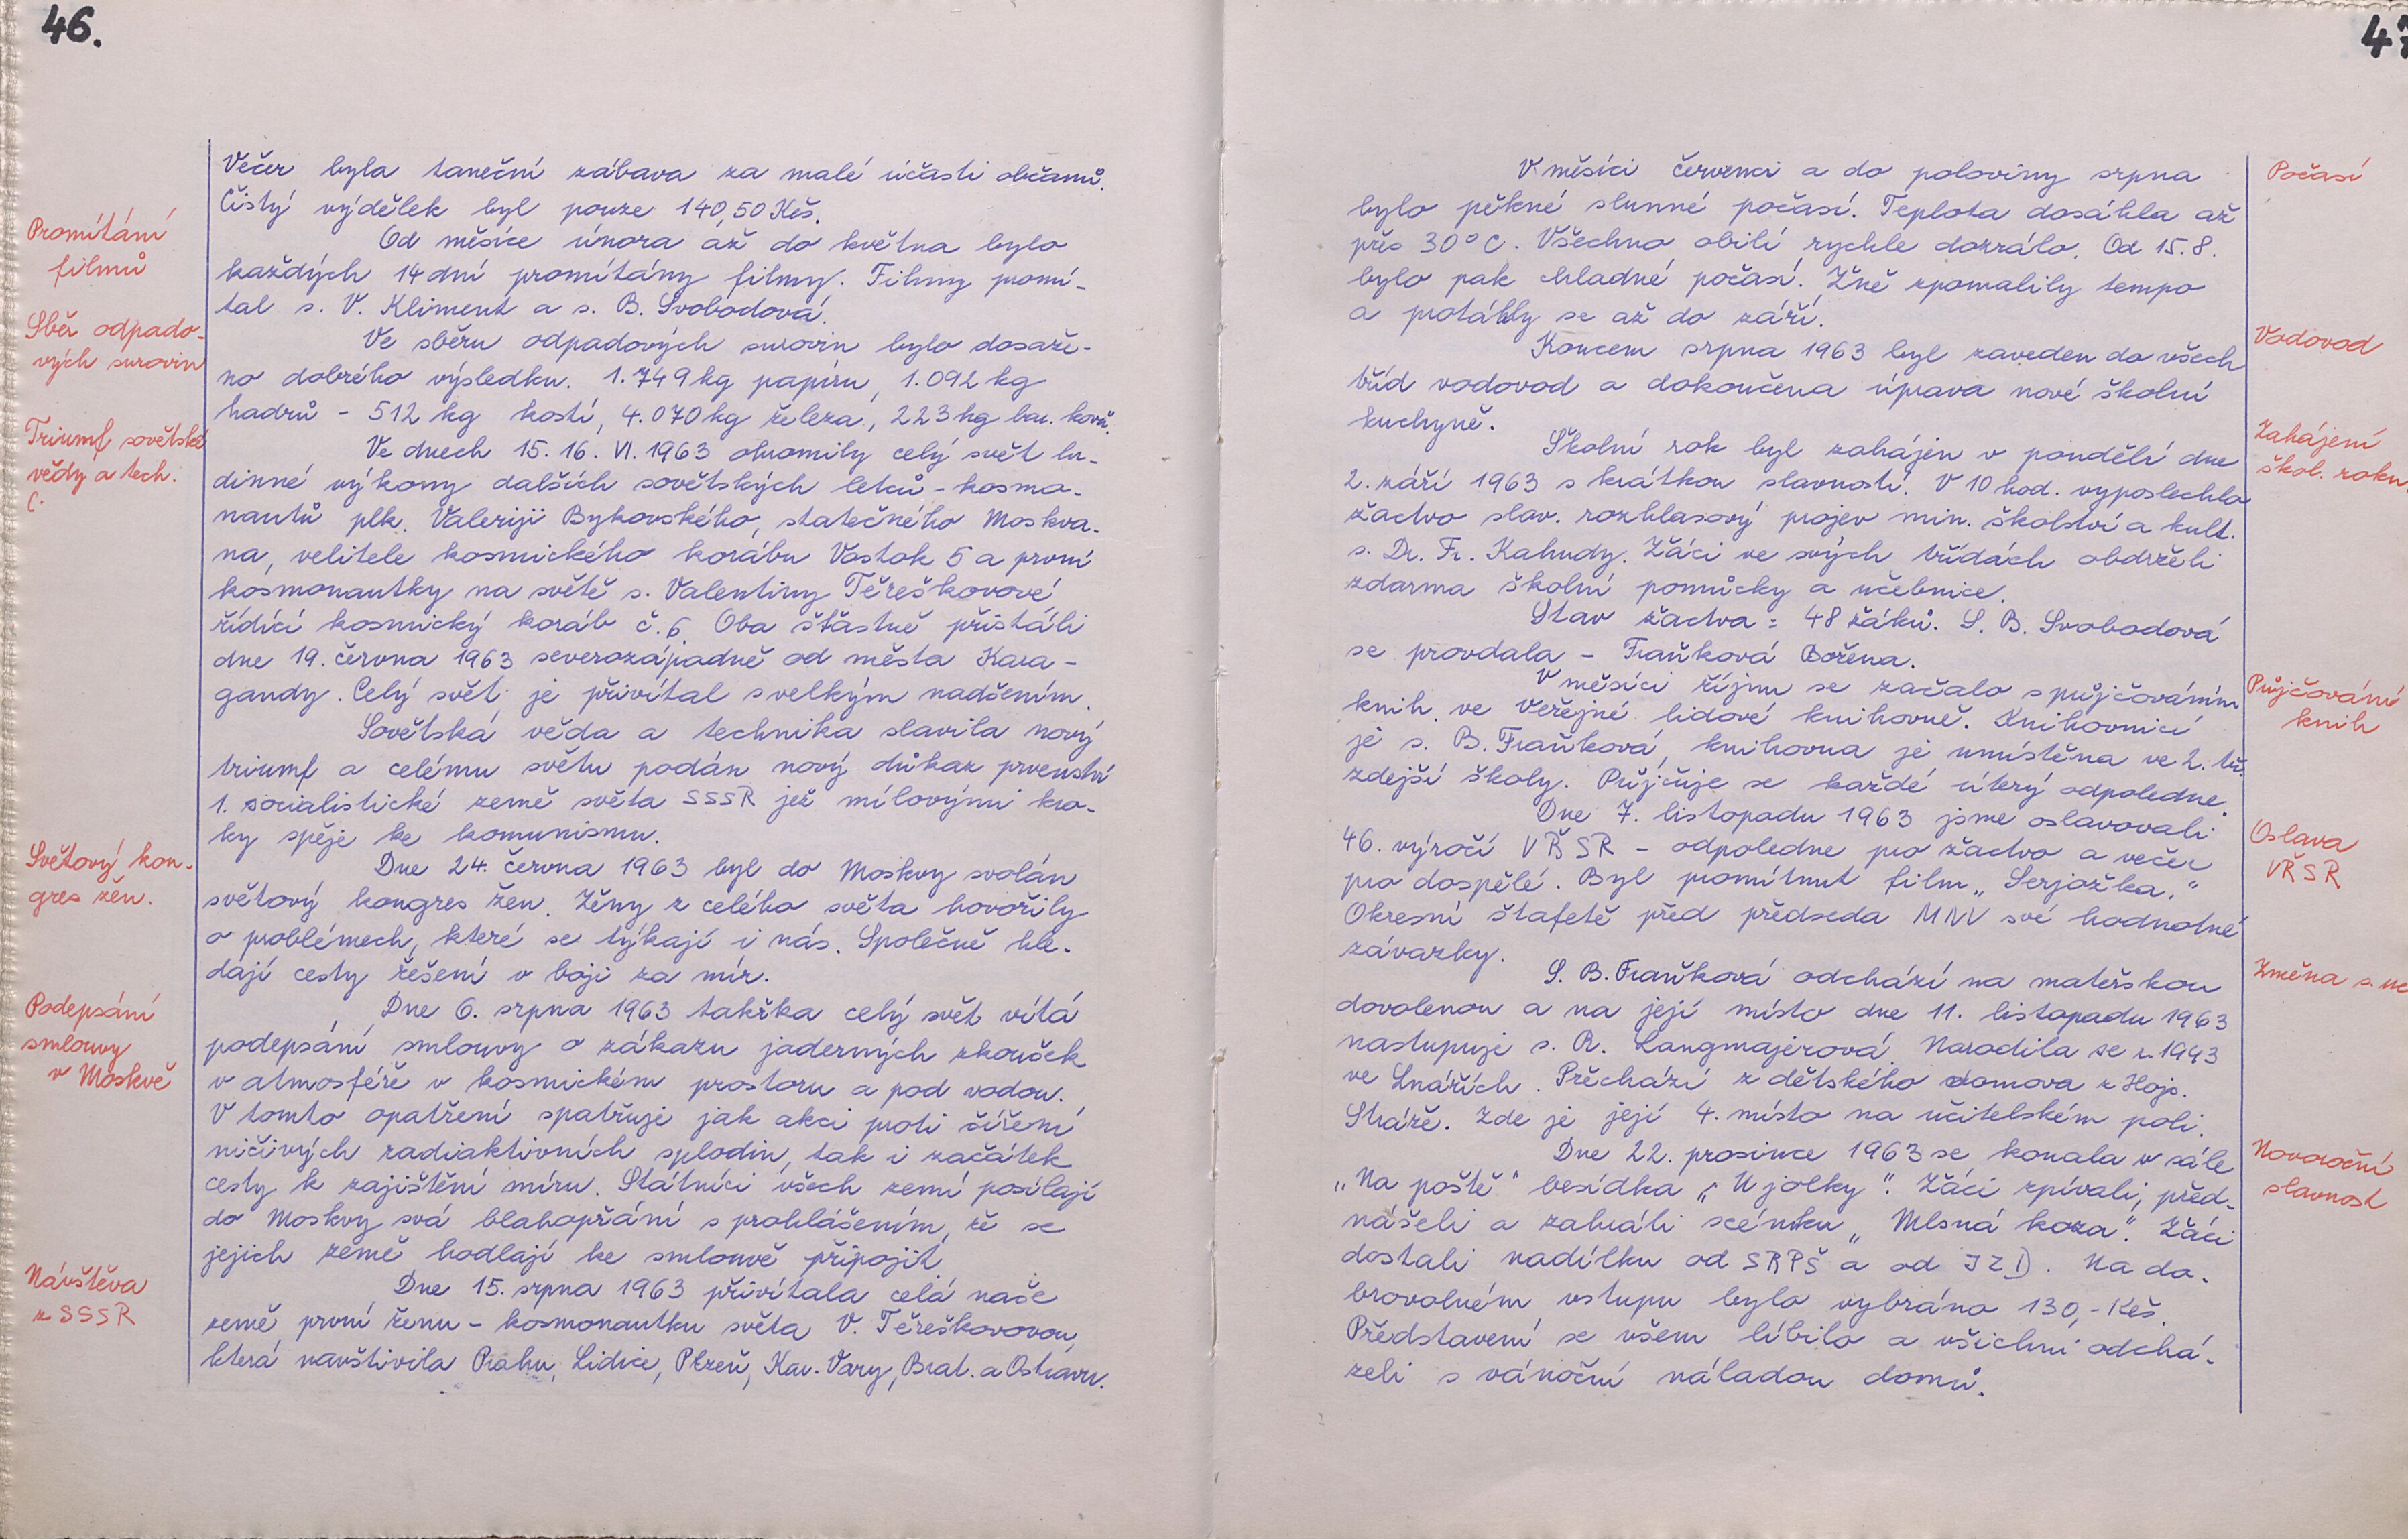 46.
Promítání
filmů
Sběr odpado-
vých surovin
Triumf sovětské
vědy a tech.
Světový kon-
gres žen.
Podepsání
smlouvy
v Moskvě
Návštěva
z SSSR
Večer byla taneční zábava za malé účasti občanů.
Čistý výdělek byl pouze 140,50 Kčs.
Od měsíce února až do května bylo
každých 14 dní promítány filmy. Filmy promí-
tal s. V. Kliment a s. B. Svobodová.
Ve sběru odpadových surovin bylo dosaže-
no dobrého výsledku. 1.749 kg papíru, 1.092 kg
hadrů - 512 kg kostí, 4.070 kg železa, 223 kg bar. kovů.
Ve dnech 15. 16. VI. 1963 ohromily celý svět hr-
dinné výkony dalších sovětských letců - kosmo-
nautů plk. Valeriji Bykovského, statečného Moskva-
na, velitele kosmického korábu Vostok 5 a první
kosmonautky na světě s. Valentiny Těreškovové
řídící kosmický koráb č. 6. Oba šťastně přistáli
dne 19. června 1963 severozápadně od města Kara-
gandy. Celý svět je přivítal s velkým nadšením.
Sovětská věda a technika slavila nový
triumf a celému světu podán nový důkaz prvenství
1. socialistické země světa SSSR jež mílovými kro-
ky spěje ke komunismu.
Dne 24. června 1963 byl do Moskvy svolán
světový kongres žen. Ženy z celého světa hovořily
o problémech, které se týkají i nás. Společně hle-
dají cesty řešení v boji za mír.
Dne 6. srpna 1963 takřka celý svět vítá
podepsání smlouvy o zákazu jaderných zkoušek
v atmosféře v kosmickém prostoru a pod vodou.
V tomto opatření spatřuje jak akci proti šíření
ničivých radiaktivních splodin, tak i začátek
cesty k zajištění míru. Státníci všech zemí posílají
do Moskvy svá blahopřání s prohlášením, že se
jejich země hodlají ke smlouvě připojit.
Dne 15. srpna 1963 přivítala celá naše
země první ženu - kosmonautku světa V. Těreškovovou,
která navštívila Prahu, Lidice, Plzeň, Kar. Vary, Brat. a Ostravu.
47
V měsíci červenci a do poloviny srpna
bylo pěkné slunné počasí. Teplota dosáhla až
přes 30° C. Všechno obilí rychle dozrálo. Od 15. 8.
bylo pak chladné počasí. Žně zpomalily tempo
a protáhly se až do září.
Koncem srpna 1963 byl zaveden do všech
tříd vodovod a dokončena úprava nové školní
kuchyně.
Školní rok byl zahájen v pondělí dne
2. září 1963 s krátkou slavností. V 10 hod. vyposlechlo
žactvo slav. rozhlasový projev min. školství a kult.
s. Dr. Fr. Kahudy. Žáci ve svých třídách obdrželi
zdarma školní pomůcky a učebnice.
Stav žactva: 48 žáků. S. B. Svobodová
se provdala - Fraňková Božena.
V měsíci říjnu se začalo s půjčováním
knih ve Veřejné lidové knihovně. Knihovnicí
je s. B. Fraňková, knihovna je umístěna ve 2. tř.
zdejší školy. Půjčuje se každé úterý odpoledne.
Dne 7. listopadu 1963 jsme oslavovali
46. výročí VŘSR - odpoledne pro žactvo a večer
pro dospělé. Byl promítnut film „Serjožka."
Okresní štafetě před předseda MNV své hodnotné
závazky.
S. B. Fraňková odchází na mateřskou
dovolenou a na její místo dne 11. listopadu 1963
nastupuje s. R. Langmajerová. Narodila se r. 1943
ve Lnářích. Přechází z dětského domova z Hojs.
Stráže. Zde je její 4. místo na učitelském poli.
Dne 22. prosince 1963 se konala v sále
„Na poště" besídka „U jolky". Žáci zpívali, před-
nášeli a zahráli scénku „Mlsná koza". Žáci
dostali nadílku od SRPŠ a od JZD. Na do-
brovolném vstupu bylo vybráno 130,- Kčs.
Představení se všem líbilo a všichni odchá-
zeli s vánoční náladou domů.
Počasí
Vodovod
Zahájení
škol. roku
Půjčování
knih
Oslava
VŘSR
Změna s. uč
Novoroční
slavnost